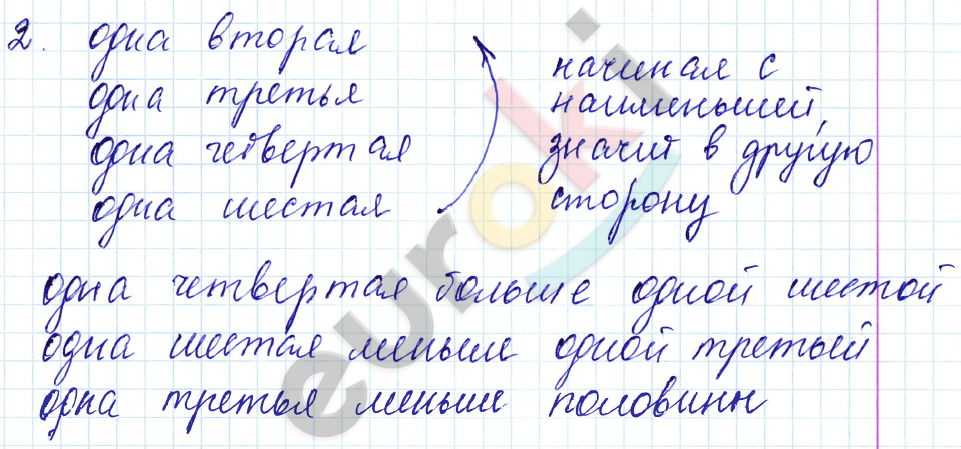 2. одна вторая
одна третья
одна четвертая
одна шестая
начиная с
наименьшей,
значит в другую
сторону
одна четвертая больше одной шестой
одна шестая меньше одной третьей
одна третья меньше половины
euroki